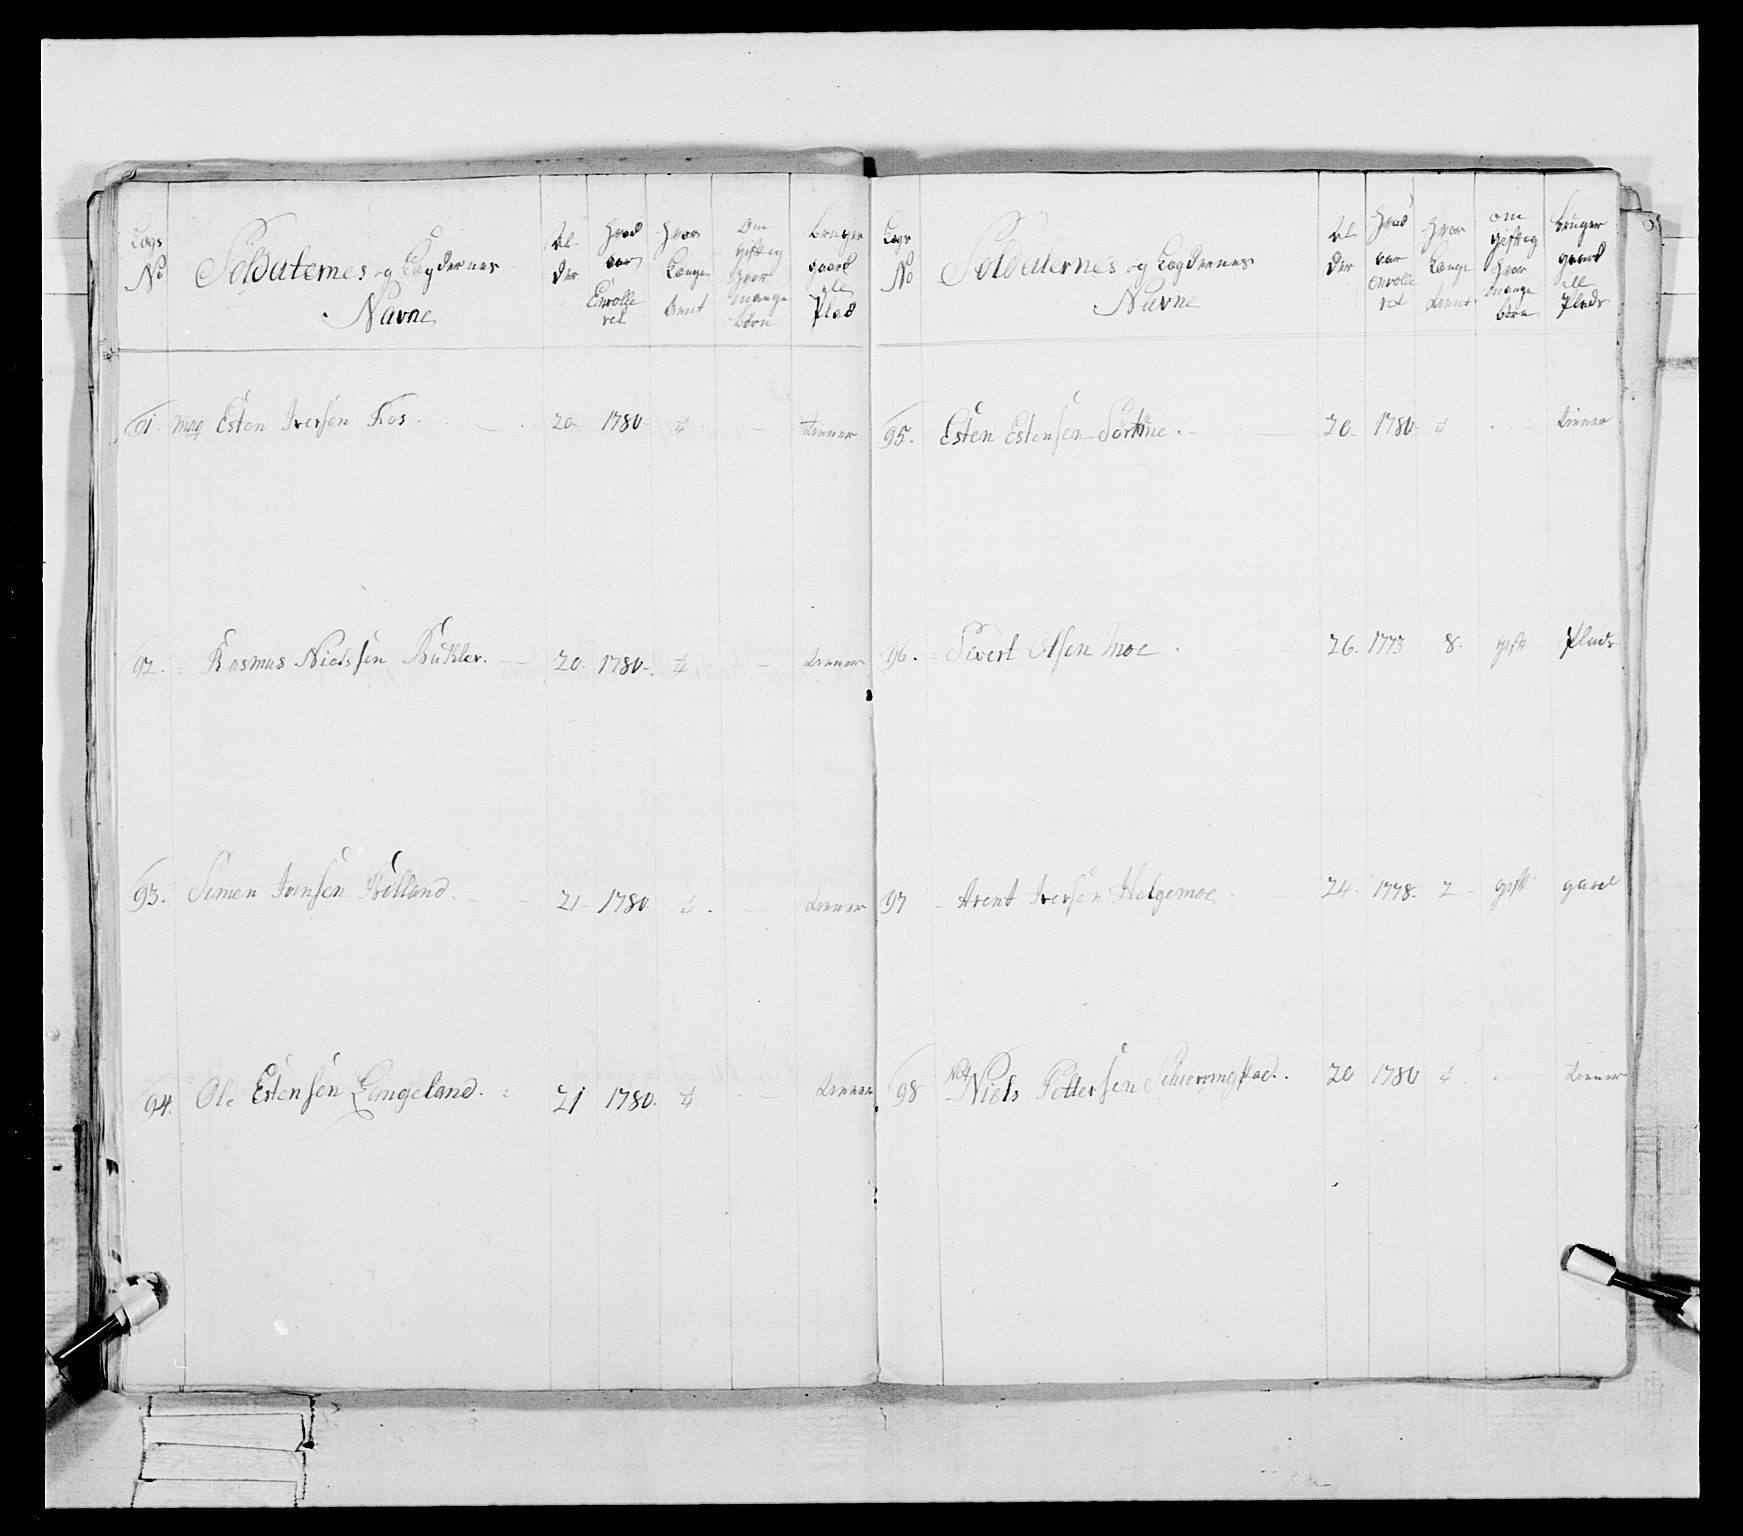 Lægs
No
Soldaternes og Lægdernes
Navne
Al
der
Hvad
aar
Enrolle
ret
Hvor
Længe
tient
Om
gift og
hvor
mange
børn
bruger
gaard
ell
Plads
61. Esten Iversen Fos 20 1780 4 - tiener
92. = Rasmus Nielssen 20 1780 4 - tiener
93. Simen Iversen 21 1780 4 - tiener
94. Ole Estensen Langeland 21 1780 4 - tiener
Lægs
No
Soldaternes og Lægdernes
Navne
Al
der
Hvad
aar
enrolle
ret
Hvor
Længe
tient
om
gift og
hvor
mange
børn
bruger
gaard
ell
Plads
95. Esten Estensen 20 1780 4 - tiener
96. = Sivert Olsen Moe 26 1773 8 gift Plads
97 - Arent Iversen Helgemoe 24 1778 2 gift gard
98 Niels Pettersen 20 1780 4 - tiener